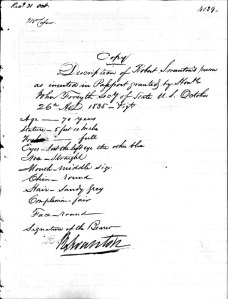 4129.
Copy
Description of Robert Swanton's person
as inserted in Passport granted by
John Forsyth Secy of State U.S. October
26th 1835
Age — 70 years
Stature — 5 feet 10 inches
full
Eyes — lost the left eye the other blue
Nose — straight
Mouth — middle size
Chin — round
Hair — sandy grey
Complexion — fair
Face — round
Signature of the Bearer
RSwanton